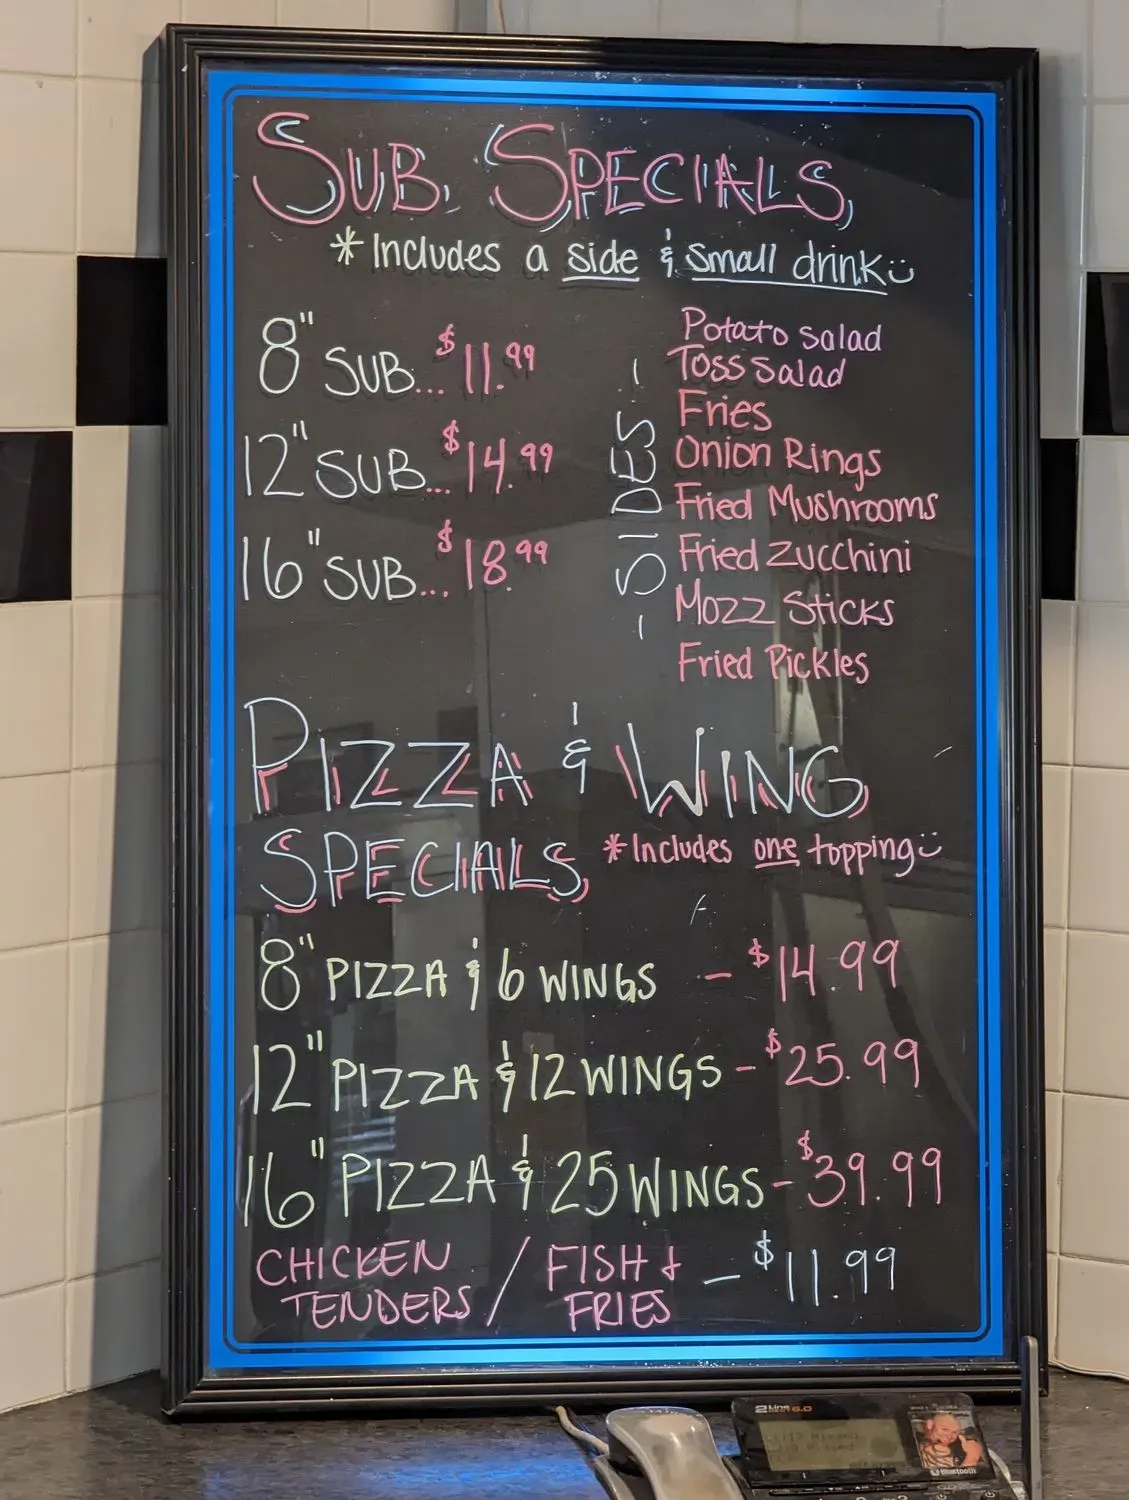 SUB SPECIALS
*Includes a side & small drink
8" SUB... $11.99
12" SUB... $14.99
16" SUB... $18.99
- SIDES -
Potato Salad
Toss Salad
Fries
Onion Rings
Fried Mushrooms
Fried Zucchini
Mozz Sticks
Fried Pickles
PIZZA & WING
SPECIALS *Includes one topping
8" PIZZA & 6 WINGS - $14.99
12" PIZZA & 12 WINGS - $25.99
16" PIZZA & 25 WINGS - $39.99
CHICKEN TENDERS / FISH & FRIES - $11.99
2 Line
6.0
Bluetooth